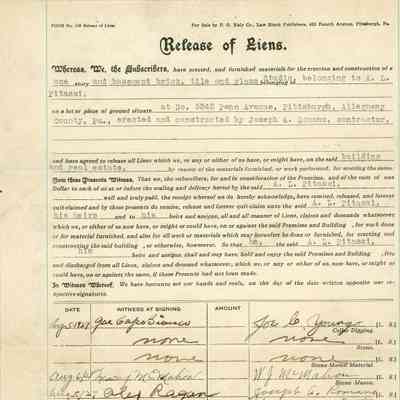 FORM No. 140 Release of Liens. For Sale by P. O. Naly Co., Law Blank Publishers, 422 Fourth Avenue, Pittsburgh, Pa.
Release of Liens.
Whereas, We, the Subscribers, have erected, and furnished materials for the erection and construction of a
one story and basement brick, tile and glass Studio, belonging to A. L.
Pitassi,
on a lot or piece of ground situate at No. 5342 Penn Avenue, Pittsburgh, Allegheny
County, Pa., erected and constructed by Joseph A. Romano, contractor.
and have agreed to release all Liens which we, or any or either of us have, or might have, on the said building
and real estate, by reason of the materials furnished, or work performed, for erecting the same.
Now these Presents Witness, That we, the subscribers, for and in consideration of the Premises, and of the sum of one
Dollar to each of us at or before the sealing and delivery hereof by the said A. L. Pitassi,
well and truly paid, the receipt whereof we do hereby acknowledge, have remised, released, and forever
quit-claimed and by these presents do remise, release and forever quit-claim unto the said A. L. Pitassi,
his heirs and to his heirs and assigns, all and all manner of Liens, claims and demands whatsoever
which we, or either of us now have, or might or could have, on or against the said Building , for work done
or for material furnished, and also for all work or materials which may hereafter be done or furnished, for erecting and
constructing the said building , or otherwise, however. So that he, the said A. L. Pitassi,
his heirs and assigns, shall and may have hold and enjoy the said Building , free
and discharged from all Liens, claims and demand whatsoever, which we, or any or either of us, now have, or might or
could have, on or against the same, if these Presents had not been made.
In Witness Whereof, We have hereunto set our hands and seals, on the day of the date written opposite our re-
spective signatures.
DATE WITNESSES AT SIGNING AMOUNT
Aug 5 1928 Joe Young [L. S.]
Cellar Digging.
none none [L. S.]
Stone.
none none [L. S.]
Stone Mason Material.
Aug W. J. McMahon [L. S.]
Stone Mason.
Aug 5/28 Alex Ragan Joseph A. Romano [L. S.]